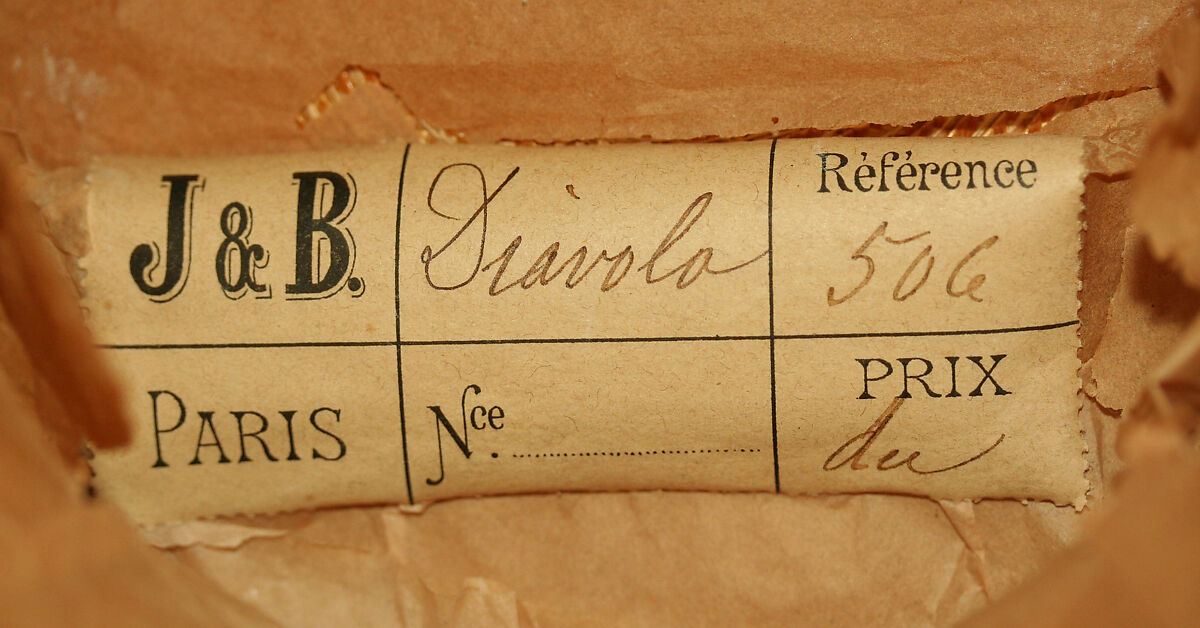 J & B.
Diavolo
Référence
506
PARIS
Nce.
PRIX
du